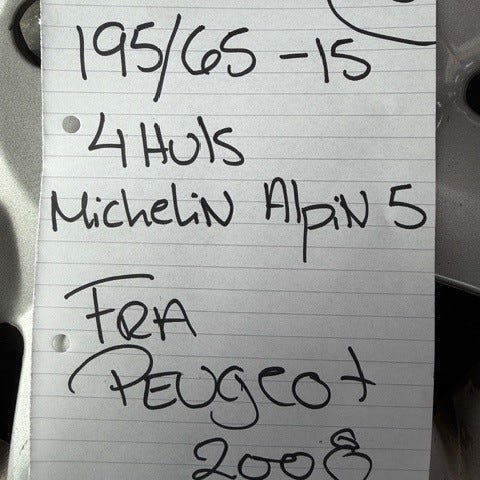 195/65-15
4 Huls
Michelin Alpin 5
FRA
PEUgeot
2008